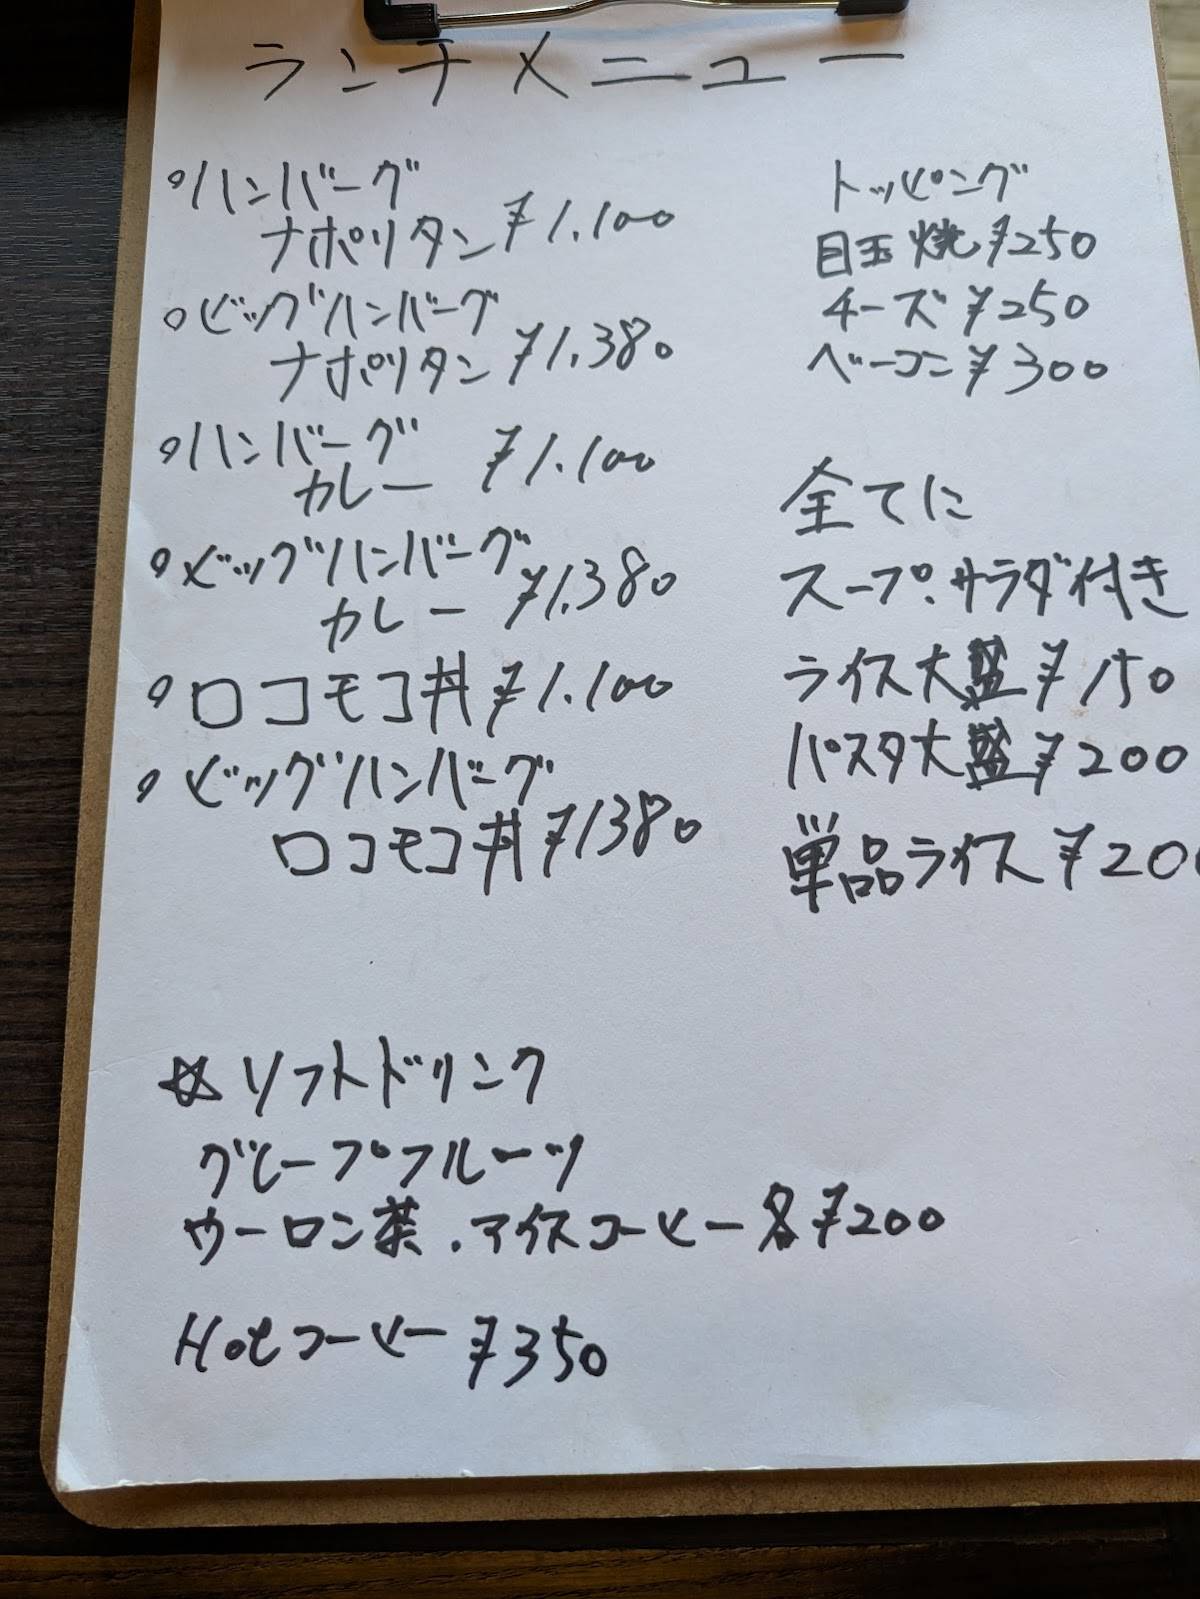 ランチメニュー
○ハンバーグ
ナポリタン ¥1.100
○ビッグハンバーグ
ナポリタン ¥1.380
○ハンバーグ
カレー ¥1.100
○ビッグハンバーグ
カレー ¥1.380
○ロコモコ丼 ¥1.100
○ビッグハンバーグ
ロコモコ丼 ¥1380
トッピング
目玉焼 ¥250
チーズ ¥250
ベーコン ¥300
全てに
スープ.サラダ付き
ライス大盛 ¥150
パスタ大盛 ¥200
単品ライス ¥200
☆ソフトドリンク
グレープフルーツ
ウーロン茶.アイスコーヒー各¥200
Hotコーヒー ¥350